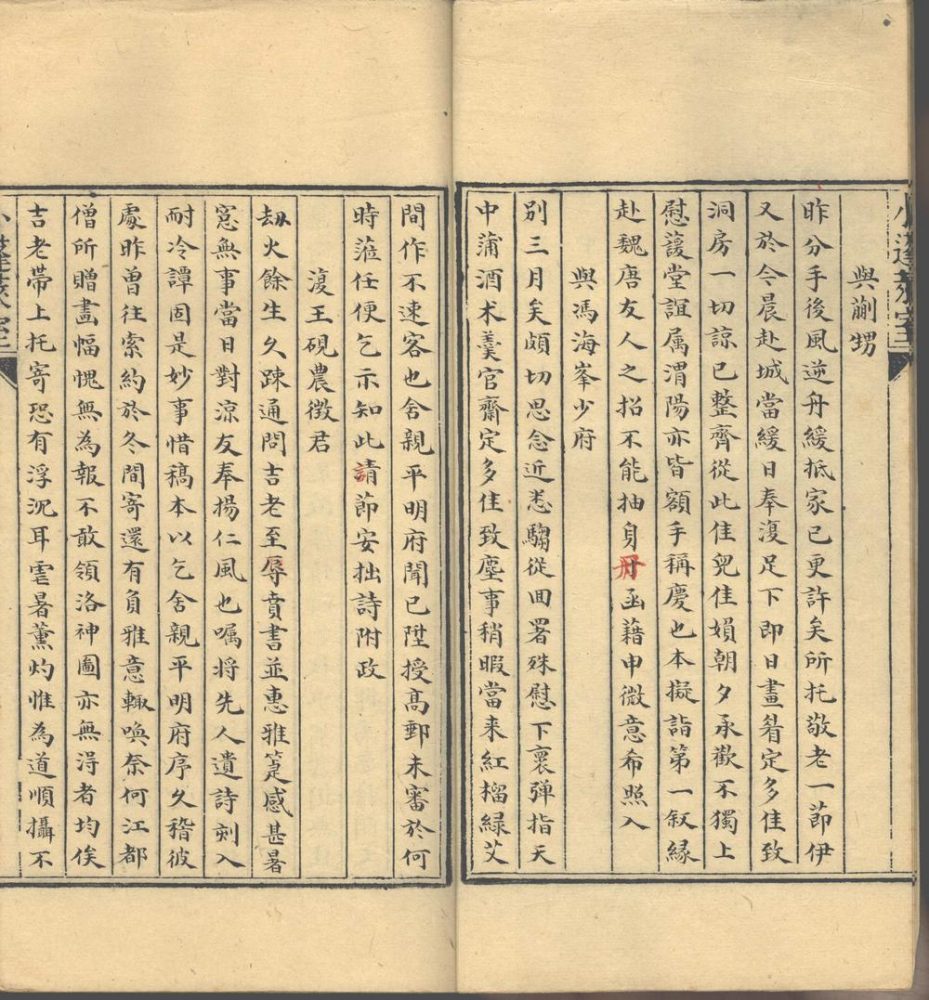 與蒯甥
昨分手後風逆舟緩抵家已更許矣所托敬老一節伊
又於今晨赴城當緩日奉復足下即日畫眉定多佳致
洞房一切諒已整齊從此佳兒佳媍朝夕承歡不獨上
慰萲堂誼属渭陽亦皆額手稱慶也本擬詣第一叙緣
赴魏唐友人之招不能抽身函藉申微意希照入
與馮海峯少府
別三月矣頗切思念近悉騶從回署殊慰下褱彈指天
中蒲酒术羹官齋定多佳致塵事稍暇當来紅榴緑艾
間作不速客也舍親平明府聞已陞授髙郵未審於何
時蒞任便乞示知此請節安拙詩附政
復王硯農徴君
刼火餘生久踈通問吉老至辱賁書並惠雅箑感甚暑
窓無事當日對涼友奉揚仁風也嘱将先人遺詩刻入
耐冷譚固是妙事惜稿本以乞舍親平明府序久稽彼
處昨曽往索約於冬間寄還有負雅意輙喚奈何江都
僧所贈畫幅愧無為報不敢領洛神圖亦無淂者均俟
吉老帶上托寄恐有浮沉耳霅暑薫灼惟為道順攝不